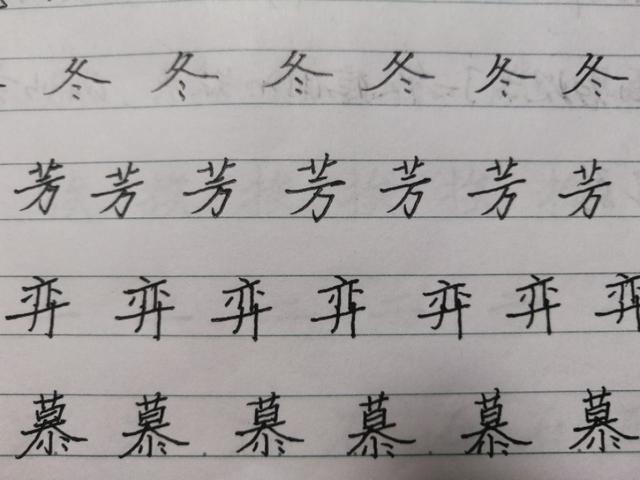 冬冬冬冬冬冬
芳芳芳芳芳芳芳
弈弈弈弈弈弈弈
慕慕慕慕慕慕